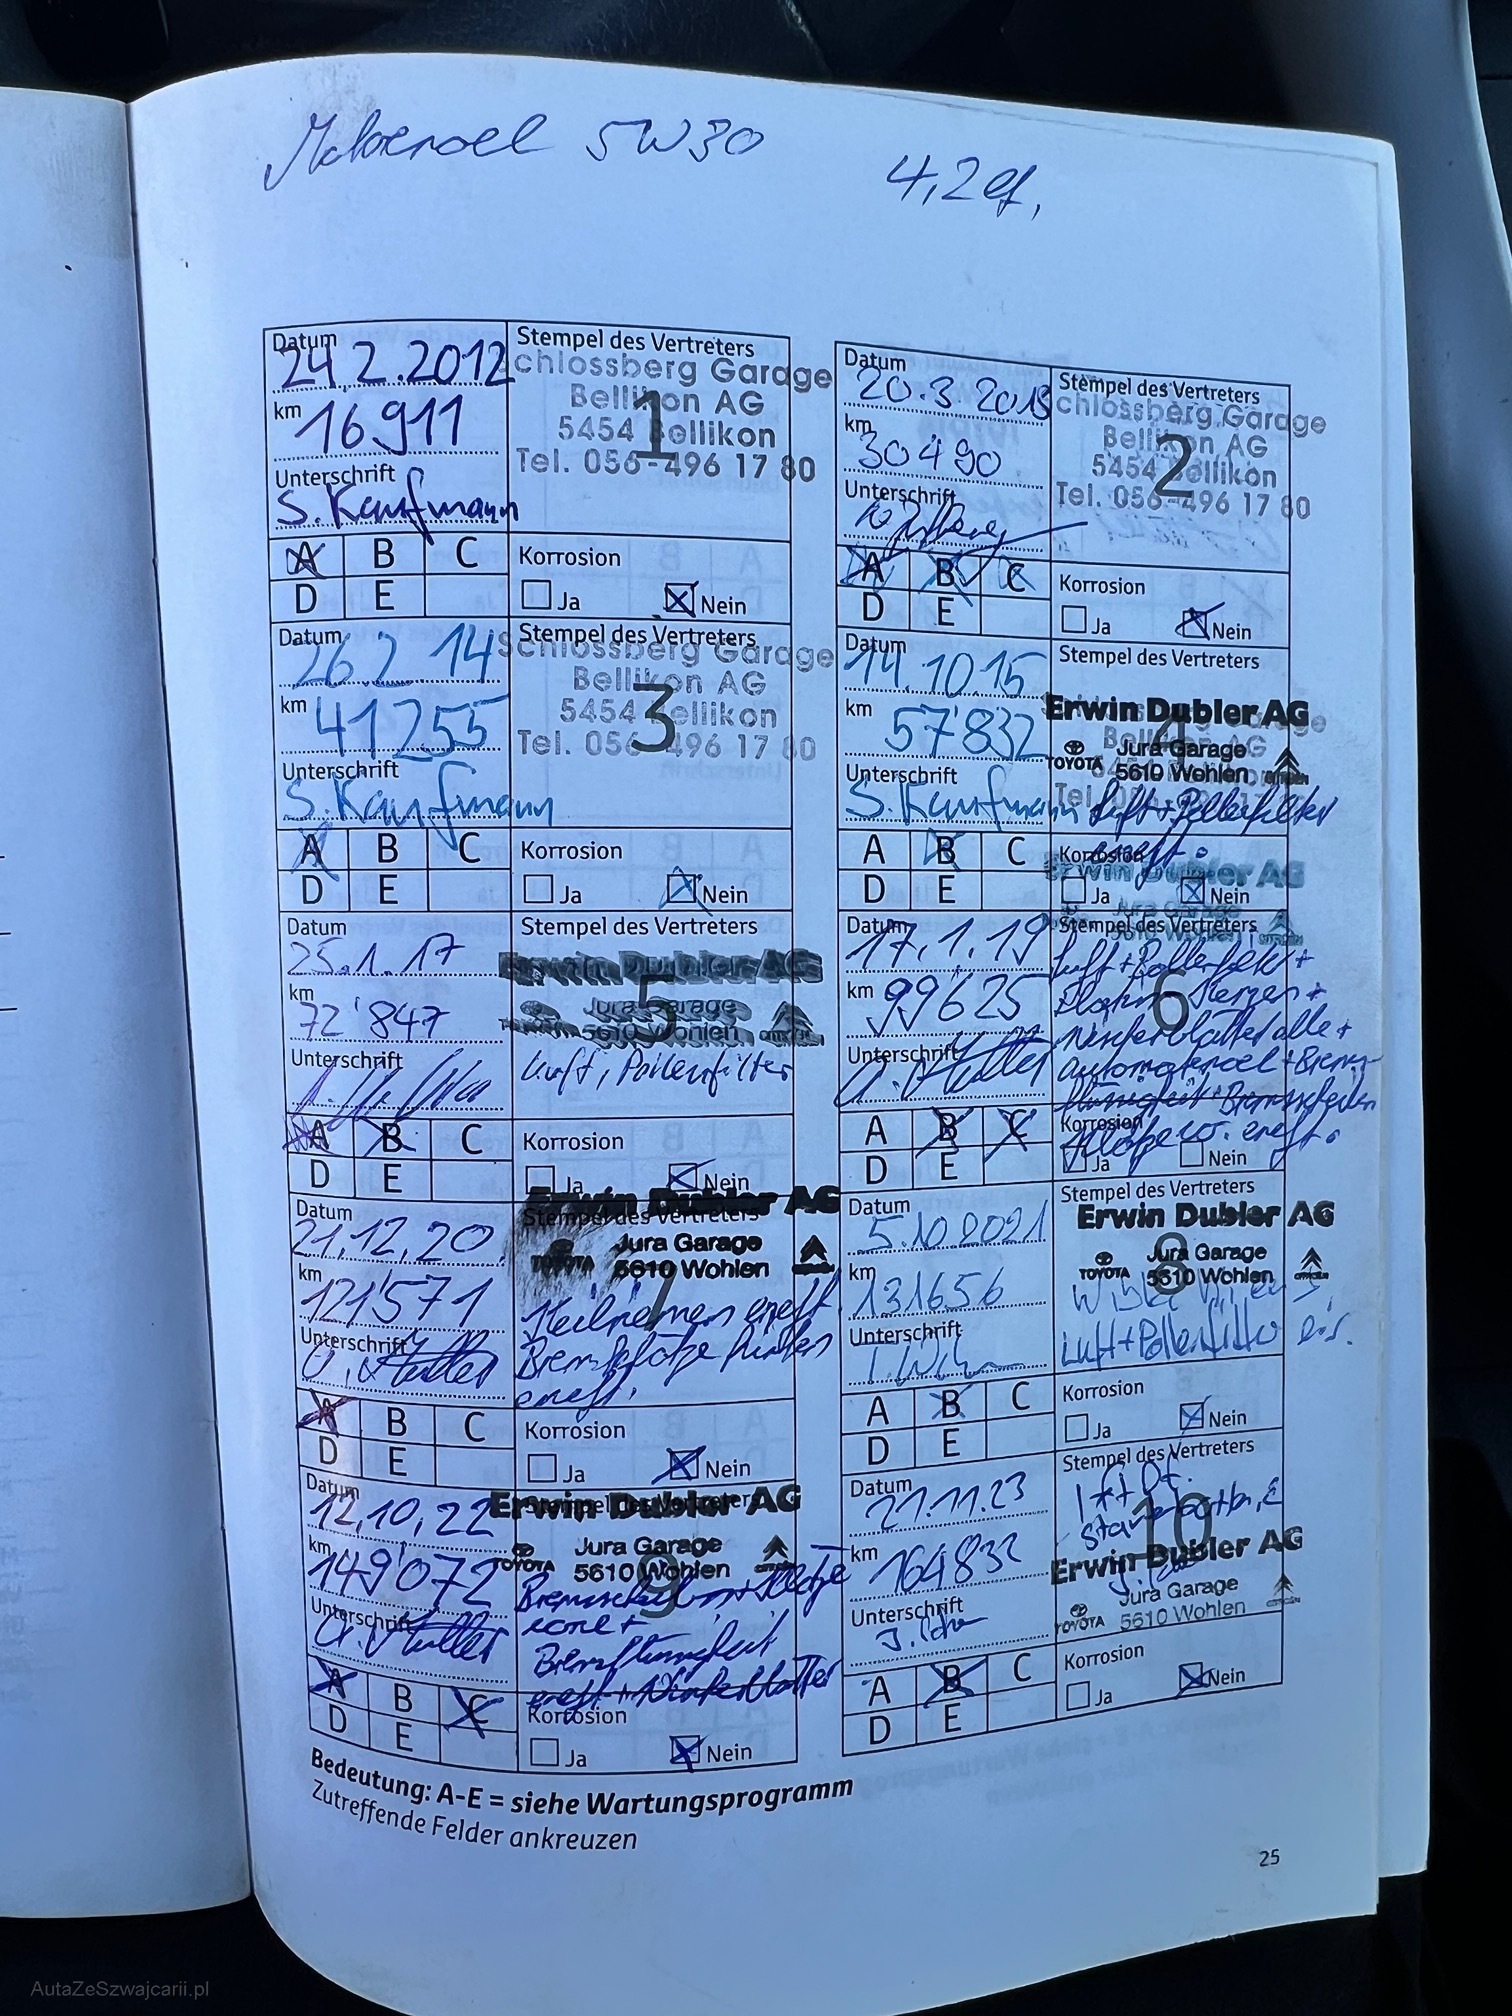 Motorenoel 5W30 4,2 lt,
Datum
24.2.2012
km
16911
Unterschrift
S. Kaufmann
Stempel des Vertreters
Schlossberg Garage
Bellikon AG
5454 Bellikon
Tel. 056-496 17 80
1
A B C
D E
Korrosion
Ja Nein
Datum
20.3 2013
km
30490
Unterschrift
Stempel des Vertreters
Schlossberg Garage
Bellikon AG
5454 Bellikon
Tel. 056-496 17 80
2
A B C
D E
Korrosion
Ja Nein
Datum
26 2 14
km
41255
Unterschrift
S. Kaufmann
Stempel des Vertreters
Schlossberg Garage
Bellikon AG
5454 Bellikon
Tel. 056-496 17 80
3
A B C
D E
Korrosion
Ja Nein
Datum
14.10.15
km
57'832
Unterschrift
S. Kaufmann
Stempel des Vertreters
Erwin Dubler AG
Jura Garage
TOYOTA 5610 Wohlen CITROËN
4
Luft + Pollenfilter
ersetzt.
A B C
D E
Korrosion
Ja Nein
Datum
25.1.17
km
72'847
Unterschrift
Stempel des Vertreters
Erwin Dubler AG
Jura Garage
TOYOTA 5610 Wohlen CITROËN
5
Luft, Pollenfilter
A B C
D E
Korrosion
Ja Nein
Datum
17.1.19
km
99'625
Unterschrift
Erwin Dubler AG
Jura Garage
5610 Wohlen CITROËN
Stempel des Vertreters
6
Luft + Pollenfilter +
Platin Kerzen +
Wischerblätter alle +
Automatenoel + Brems-
flüssigkeit + Bremsscheiben
Klötze vo. ersetzt.
A B C
D E
Korrosion
Ja Nein
Datum
21.12.20
km
121'571
Unterschrift
Erwin Dubler AG
Stempel des Vertreters
Jura Garage
TOYOTA 5610 Wohlen CITROËN
7
Keilriemen ersetzt
Bremsklötze hinten
ersetzt.
A B C
D E
Korrosion
Ja Nein
Datum
5.10.2021
km
131656
Unterschrift
Stempel des Vertreters
Erwin Dubler AG
Jura Garage
TOYOTA 5610 Wohlen CITROËN
8
Luft + Pollenfilter ers.
A B C
D E
Korrosion
Ja Nein
Datum
12.10.22
km
149'072
Unterschrift
Stempel des Vertreters
Erwin Dubler AG
Jura Garage
TOYOTA 5610 Wohlen CITROËN
9
Bremsscheiben + Klötze
Bremsflüssigkeit
ersetzt + Wischerblätter
A B C
D E
Korrosion
Ja Nein
Datum
21.11.23
km
164832
Unterschrift
Stempel des Vertreters
10
Erwin Dubler AG
Jura Garage
TOYOTA 5610 Wohlen
A B C
D E
Korrosion
Ja Nein
Bedeutung: A-E = siehe Wartungsprogramm
Zutreffende Felder ankreuzen
25
AutaZeSzwajcarii.pl